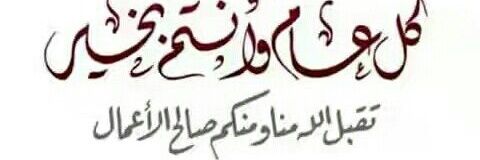 كل عام وأنتم بخير
تقبل الله منا ومنكم صالح الأعمال